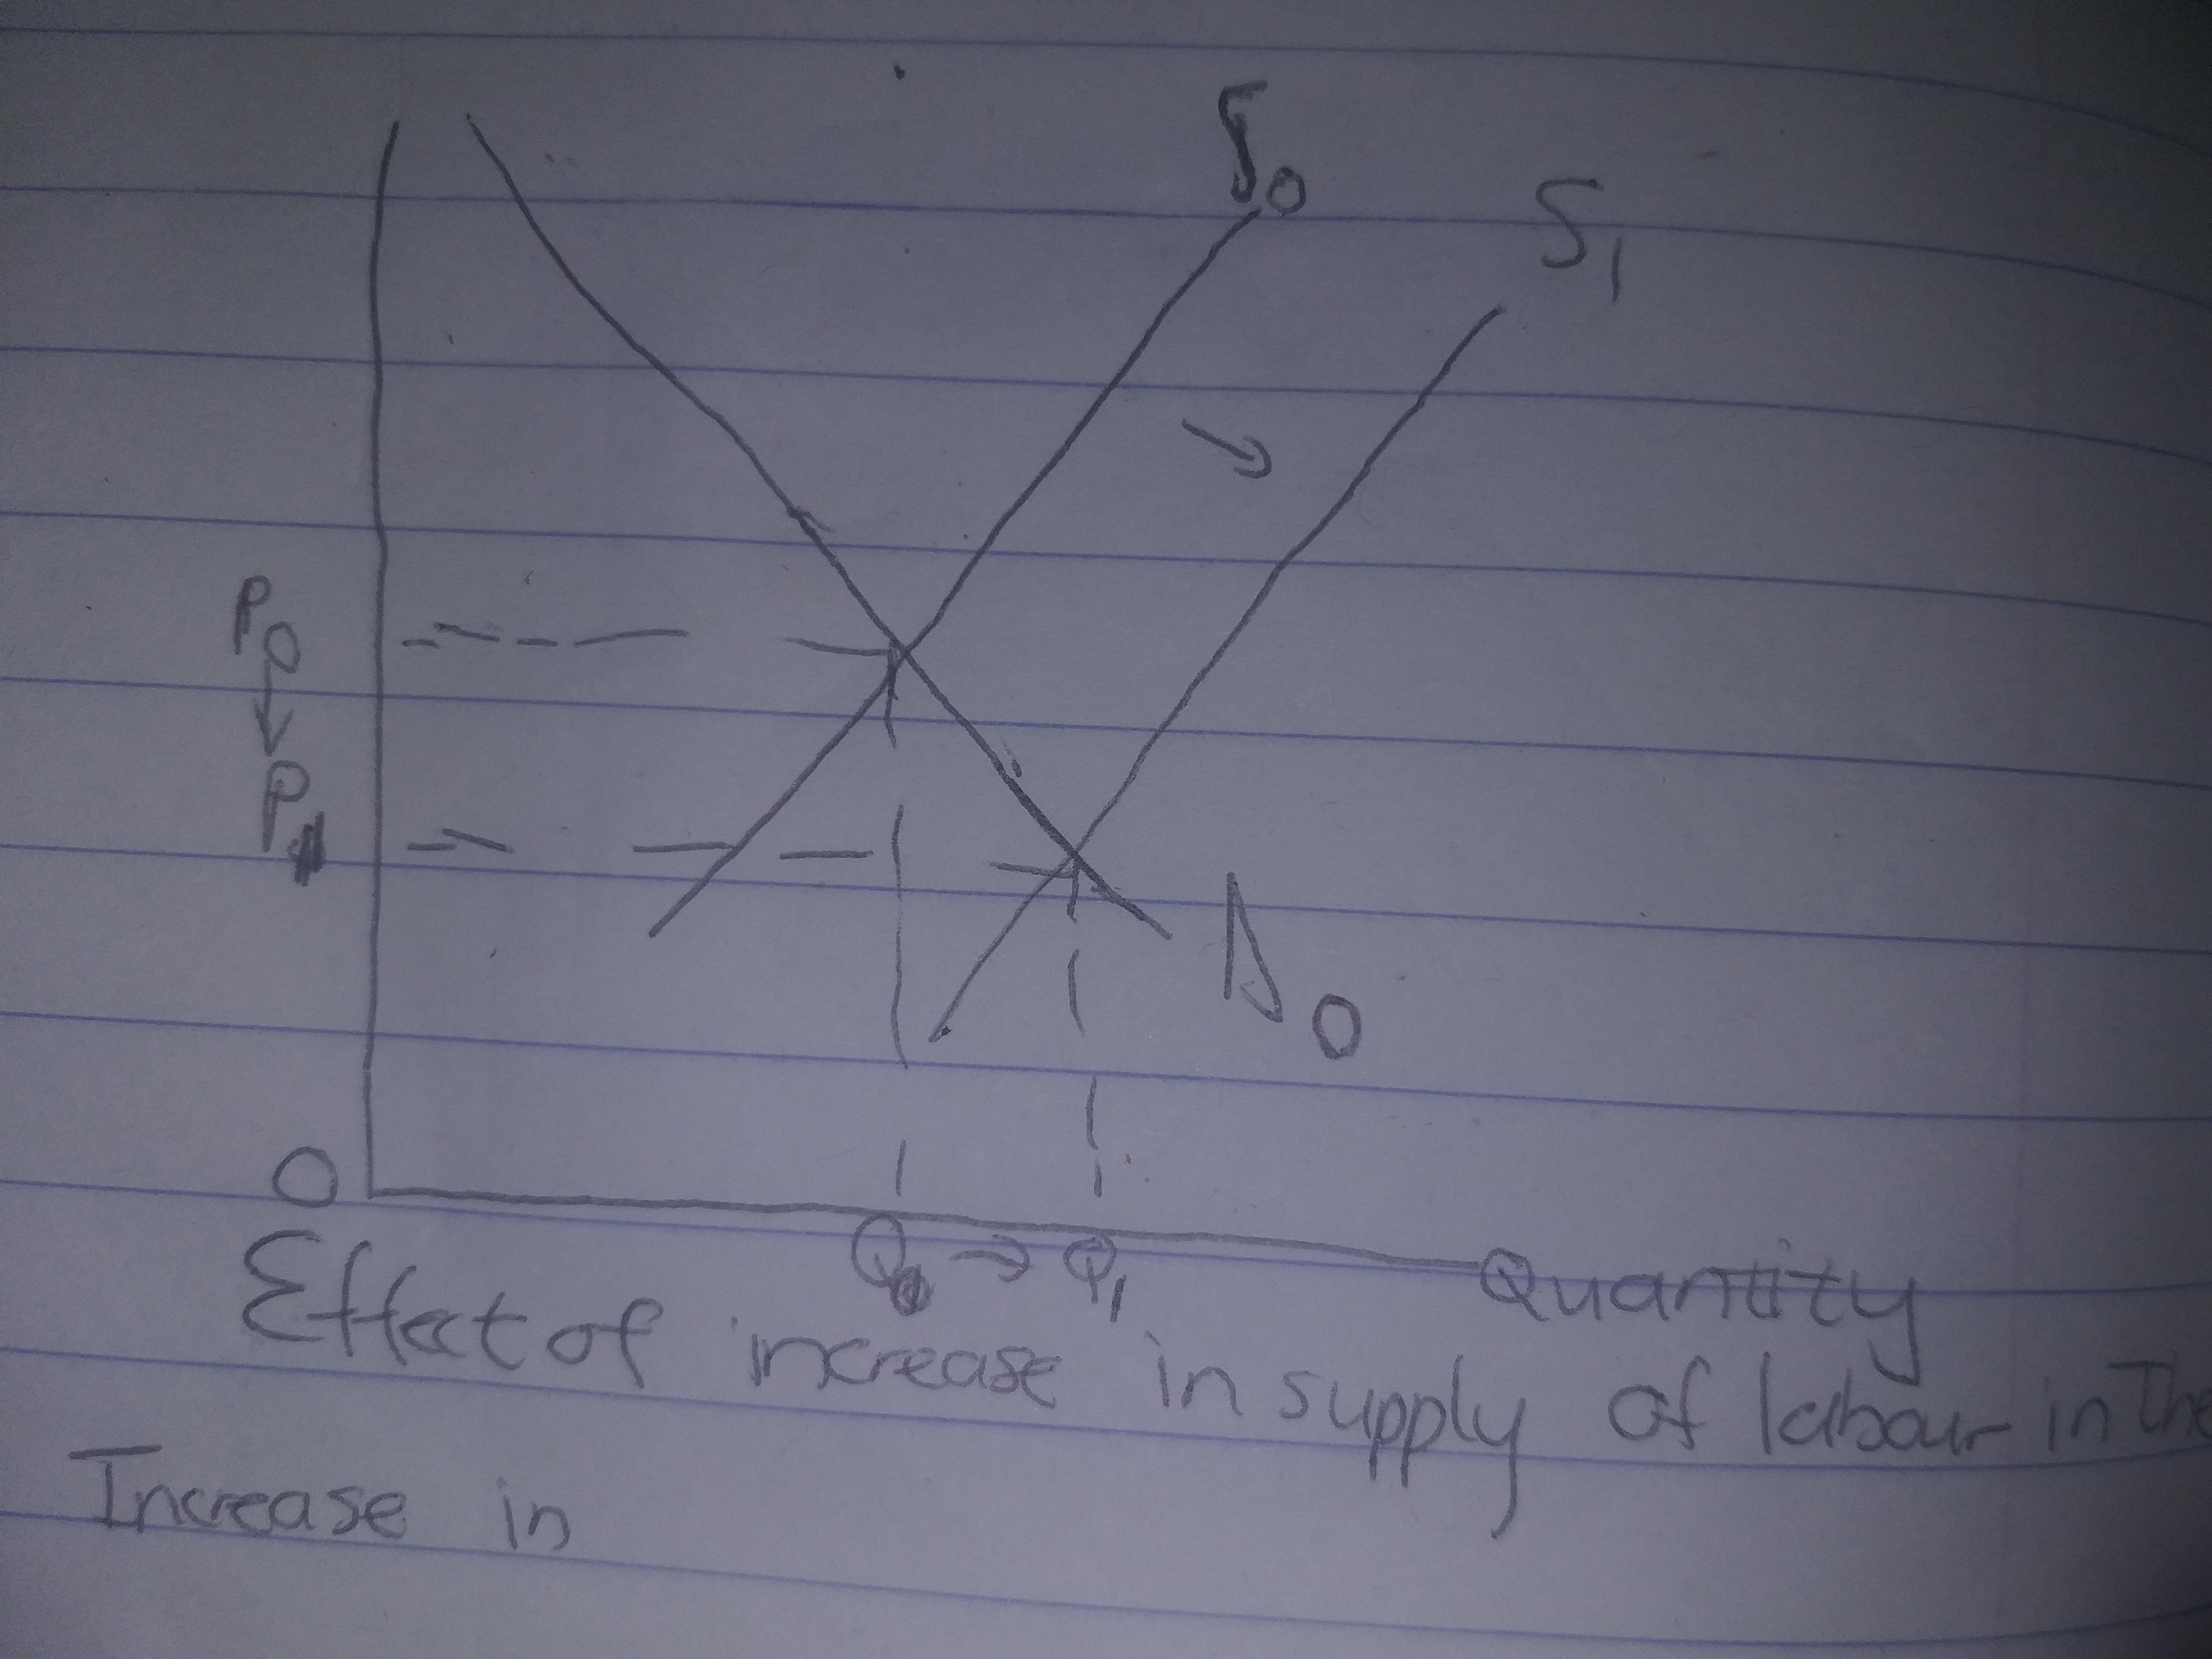 S0
S1
P0
P1
D0
O
Q0 → Q1
Quantity
Effect of increase in supply of labour in The
Increase in